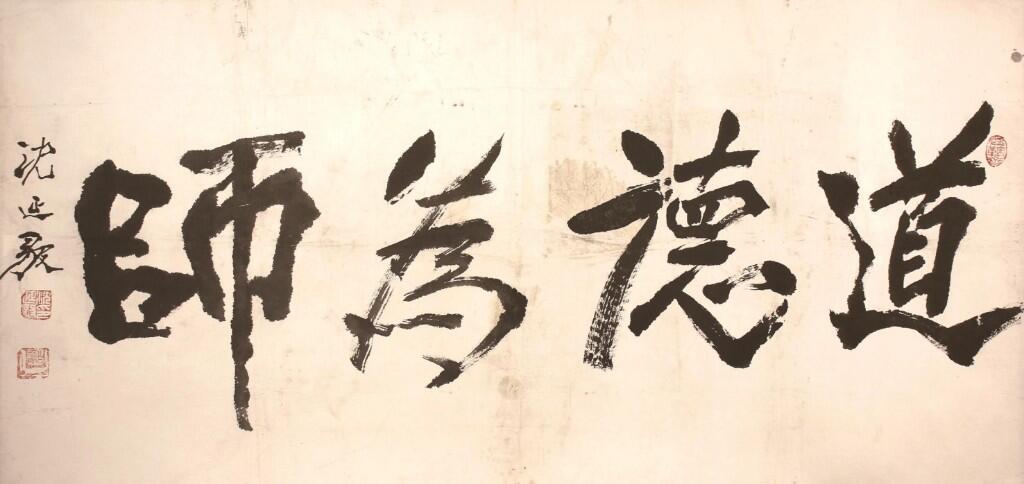 道德為師
沈延毅